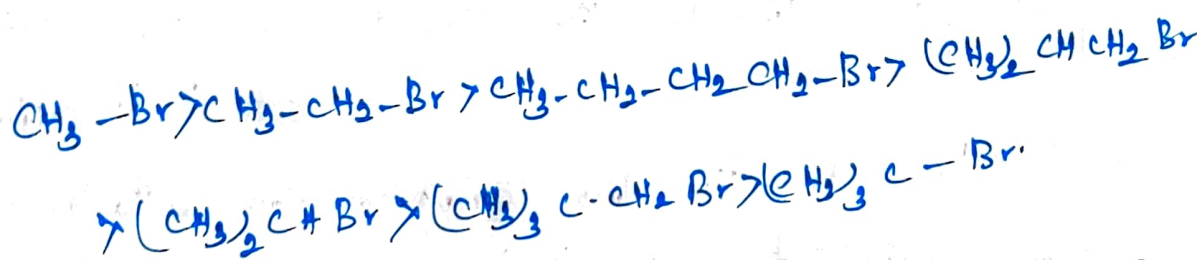 CH₃-Br>CH₃-CH₂-Br>CH₃-CH₂-CH₂CH₂-Br>(CH₃)₂CHCH₂Br
>(CH₃)₂CHBr>(CH₃)₃C-CH₂Br>(CH₃)₃C-Br.